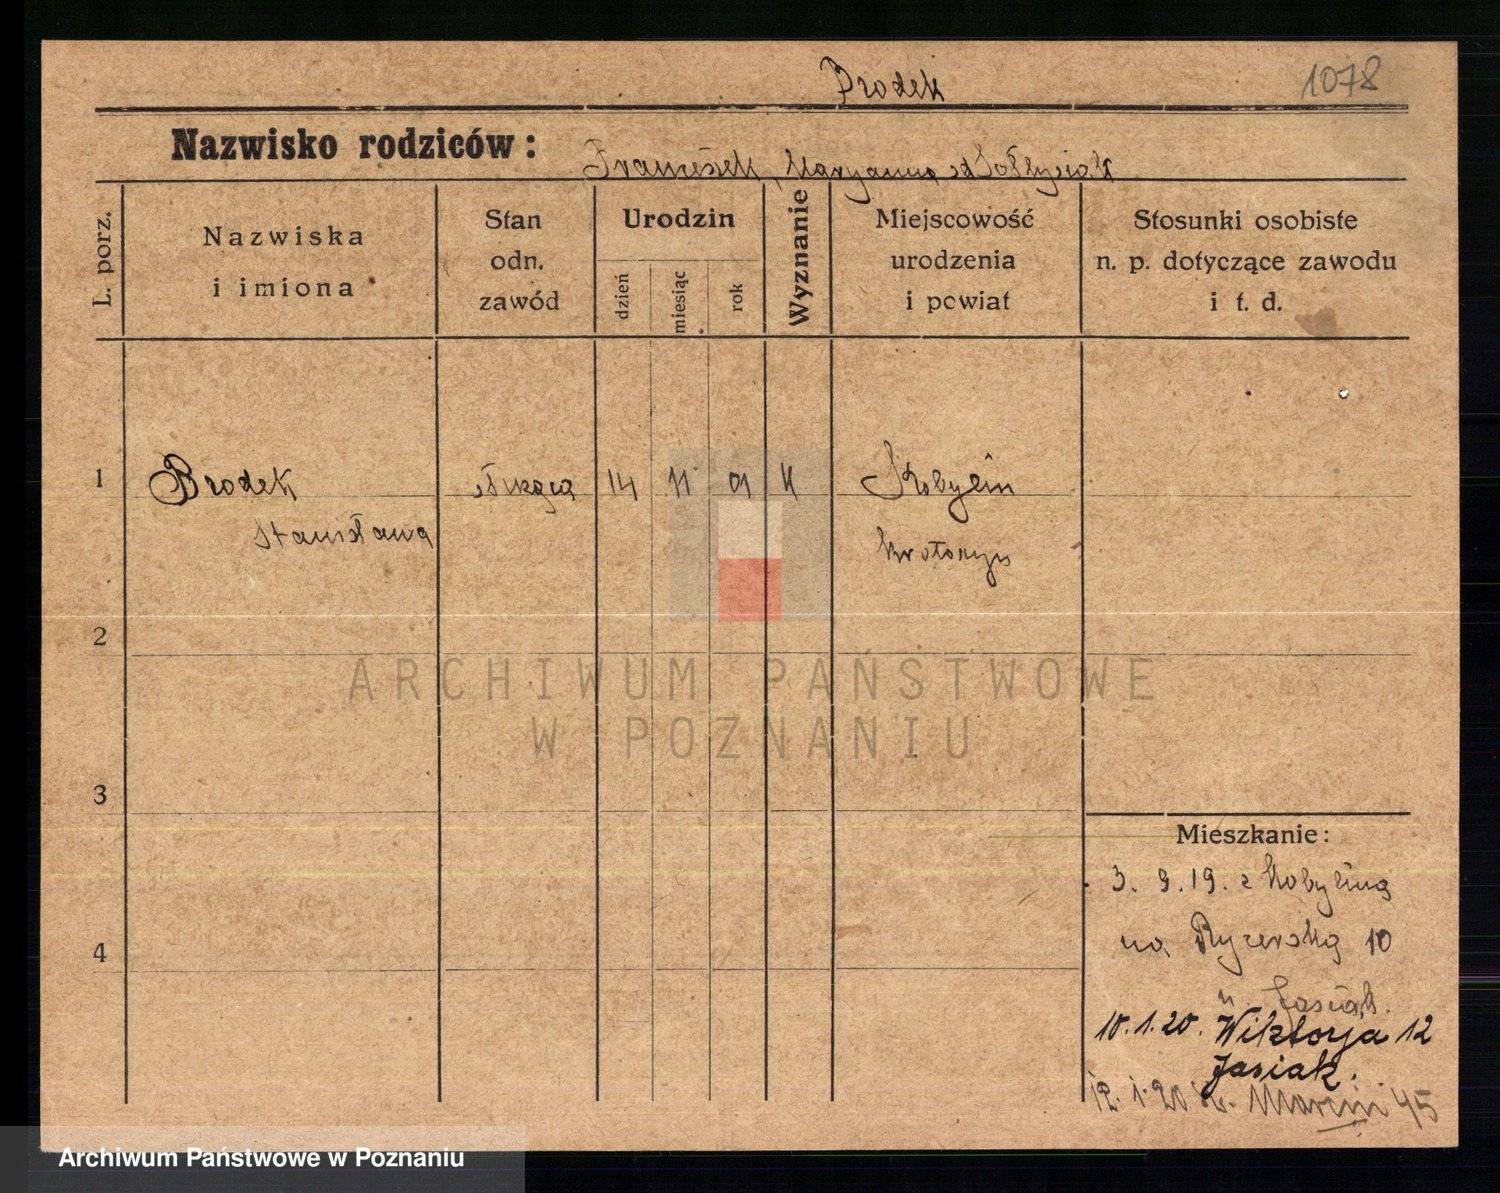 Brodek 1078
Nazwisko rodziców: Franciszek, Maryanna
L. porz.
Nazwiska
i imiona
Stan
odn.
zawód
Urodzin
dzień
miesiąc
rok
Wyznanie
Miejscowość
urodzenia
i powiat
Stosunki osobiste
n. p. dotyczące zawodu
i t. d.
1 Brodek służąca 14 11 01 K Kobylin
Stanisława Krotoszyn
2
3
4
Mieszkanie:
3. 9. 19. z Kobylina
na 10
u Jasiak.
10.1.20. Wiktorja 12
Jasiak.
12. 1. 20 Marcin 45
ARCHIWUM PAŃSTWOWE
W POZNANIU
Archiwum Państwowe w Poznaniu